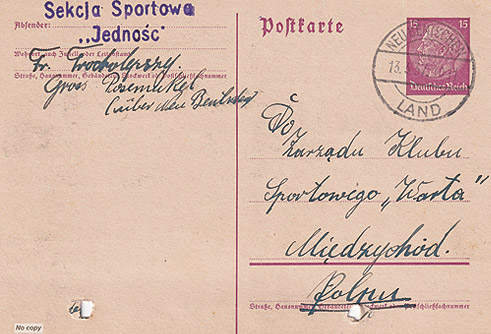 Sekcja Sportowa
Absender:
„Jedność"
Wohnort, auch Zustell- oder Leitpostamt
Fr.
Straße, Hausnummer, Gebäudeteil, Stockwerk od. Postschließfachnummer
Gross
(über Neu Bentschen)
No copy
Postkarte
15 15
Deutsches Reich
NEU BENTSCHEN
13.
LAND
Do
Zarządu Klubu
Sportowego „Warta"
Międzychód.
Polen
Straße, Hausnummer, Gebäudeteil, Stockwerk od. Postschließfachnummer